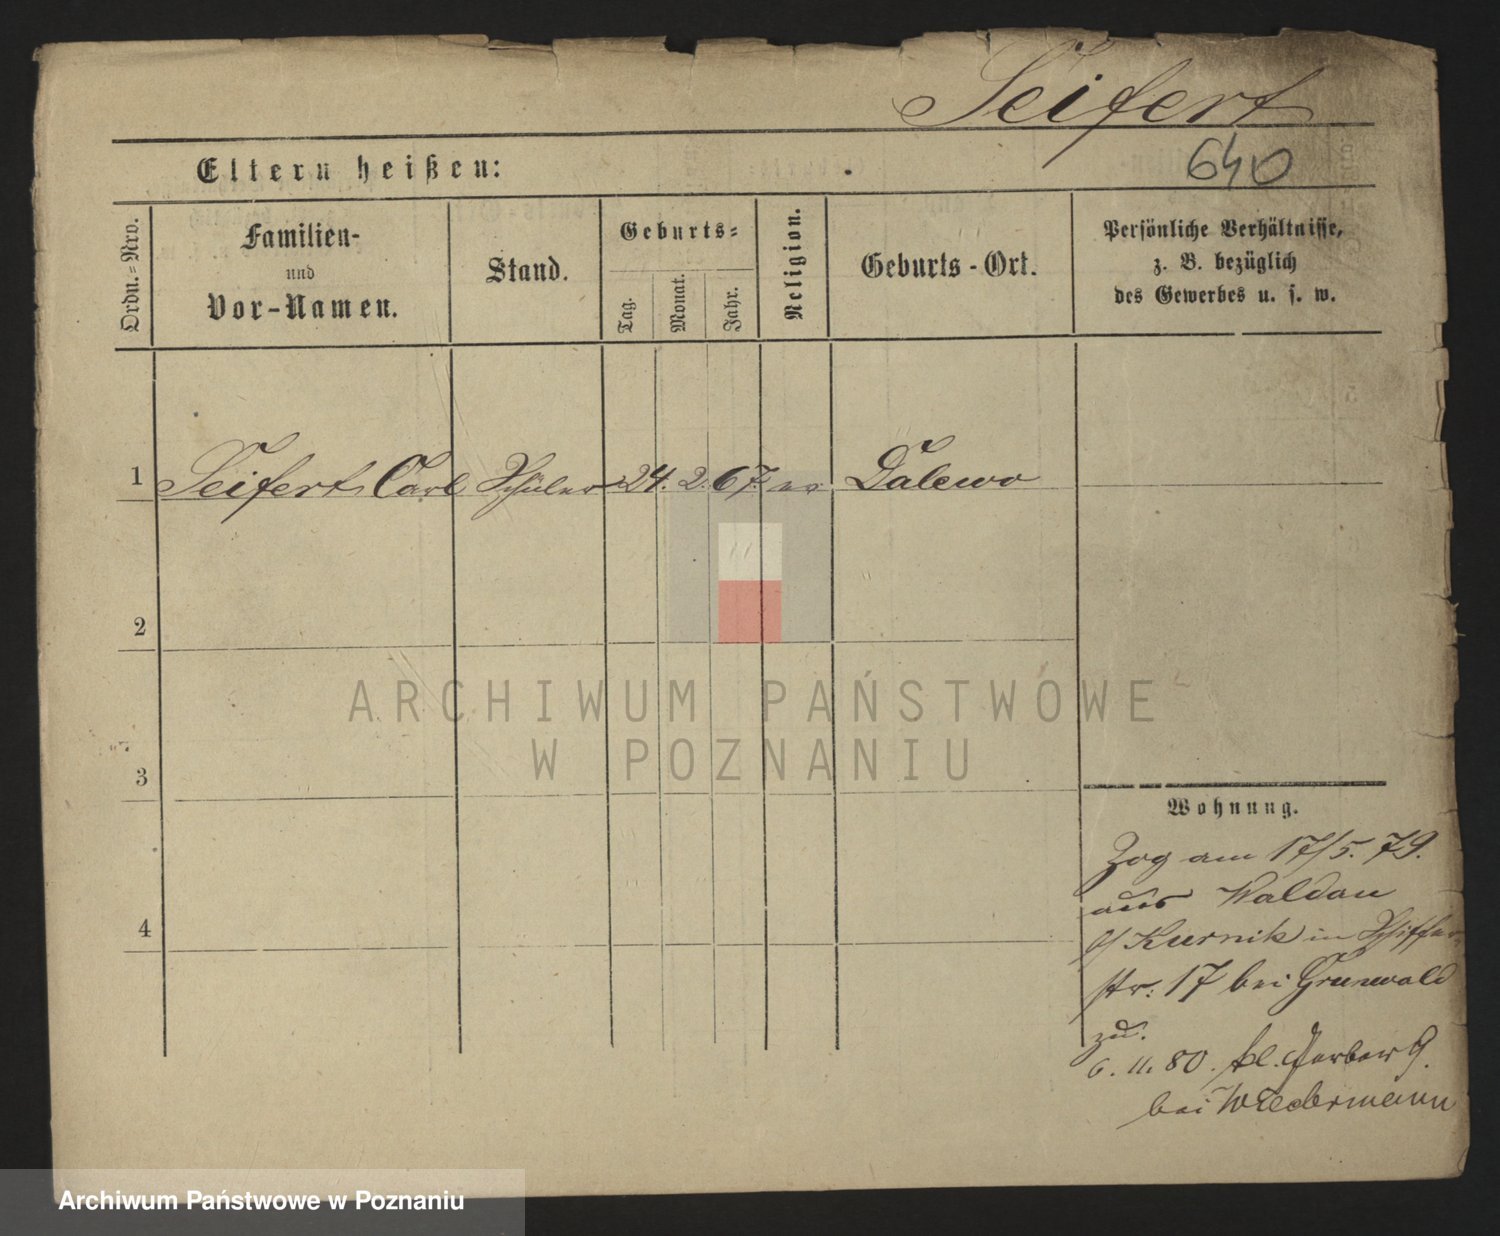 Seifert
640
Eltern heißen:
Ordn.=Nro.
Familien-
und
Vor-Namen.
Stand.
Geburts=
Tag.
Monat.
Jahr.
Religion.
Geburts-Ort.
Persönliche Verhältnisse,
z. B. bezüglich
des Gewerbes u. s. w.
1 Seifert Carl Schüler 24. 2. 67. ev Dalewo
2
3
4
Wohnung.
Zog am 17/5. 79.
aus Waldau
b/ Kurnik in Schiffer
str: 17 bei Grunewald
zu.
6. 11. 80. kl. Gerber 9.
bei Wiedermann
ARCHIWUM PAŃSTWOWE
W POZNANIU
Archiwum Państwowe w Poznaniu